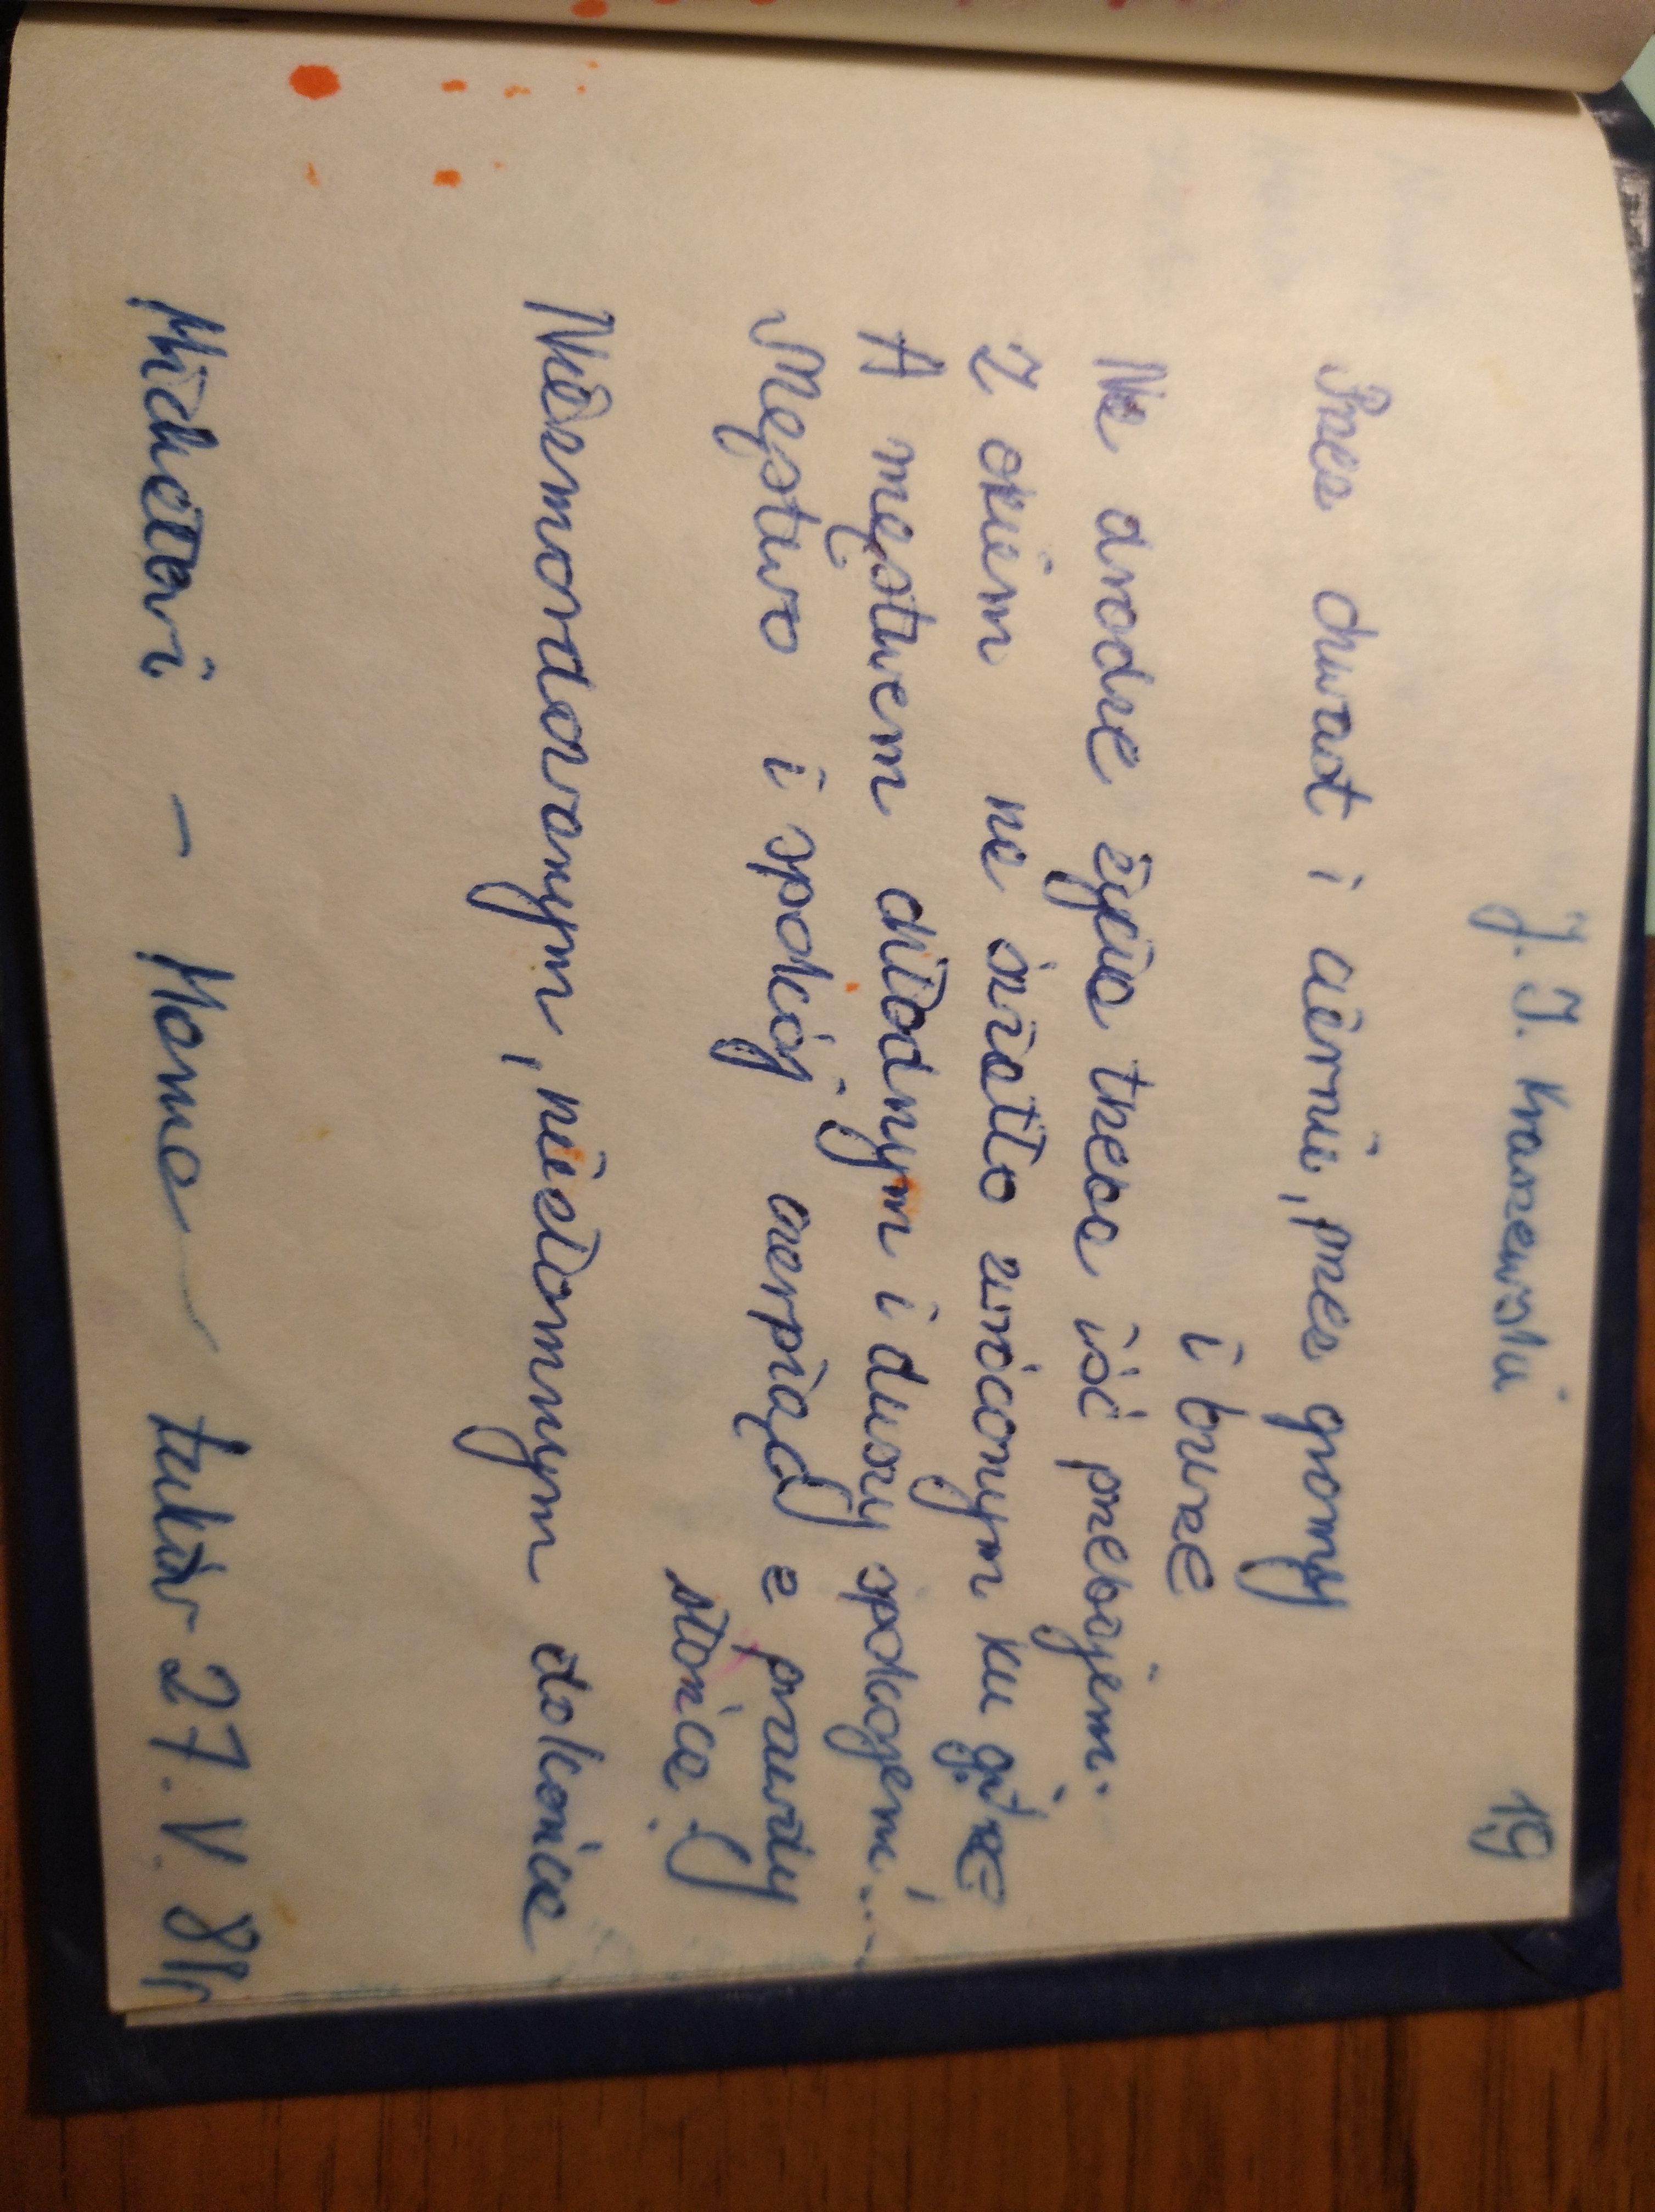 J. I. Kraszewski
19
Przez chwast i ciernie, przez gromy
i burze
Na drodze życia trzeba iść przebojem.
Z okiem na światło zwróconym ku górze
A męstwem chłodnym i duszy spokojem...
Męstwo i spokój czerpiąc z prawdy
słońca!
Niezmordowanym, niezłomnym do końca
Michałowi - Mama Łuków 27.V.81r